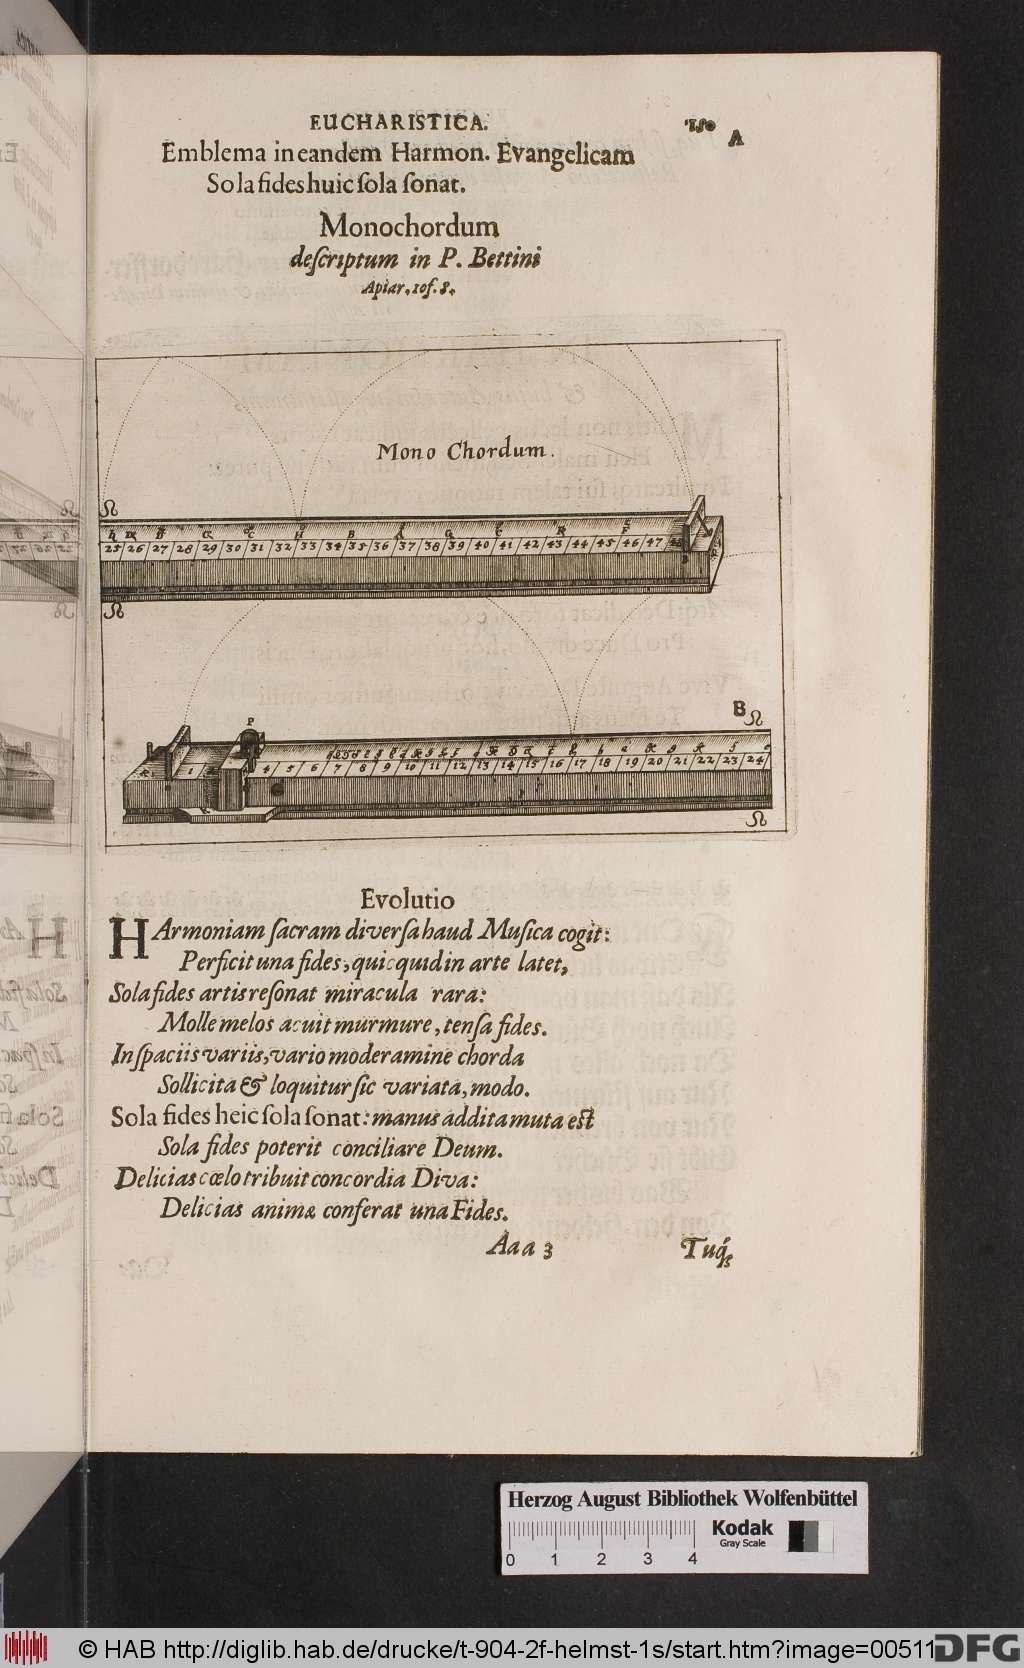 EUCHARISTICA.
A
Emblema in eandem Harmon. Evangelicam
Sola fides huic ſola ſonat.
Monochordum
deſcriptum in P. Bettini
Apiar. 10f. 8.
Mono Chordum.
25 26 27 28 29 30 31 32 33 34 35 36 37 38 39 40 41 42 43 44 45 46 47 48
B
P
1 4 5 6 7 8 9 10 11 12 13 14 15 16 17 18 19 20 21 22 23 24
Evolutio
HArmoniam ſacram diverſa haud Muſica cogit:
Perficit una fides, quicquid in arte latet,
Sola fides artis reſonat miracula rara:
Molle melos acuit murmure, tenſa fides.
In ſpaciis variis, vario moderamine chorda
Sollicita & loquitur ſic variata, modo.
Sola fides heic ſola ſonat: manus addita muta eſt
Sola fides poterit conciliare Deum.
Delicias cœlo tribuit concordia Diva:
Delicias animæ conferat una Fides.
Aaa 3
Tuq́;
Herzog August Bibliothek Wolfenbüttel
Kodak
Gray Scale
0 1 2 3 4
© HAB http://diglib.hab.de/drucke/t-904-2f-helmst-1s/start.htm?image=00511
DFG